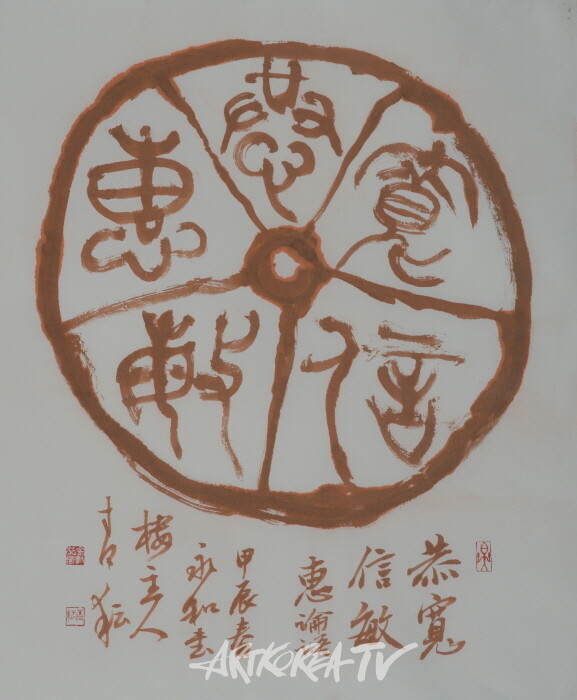 恭
寬
信
敏
惠
恭寬
信敏
惠論語
甲辰春
永和書
樓主人
ARTKOREA TV